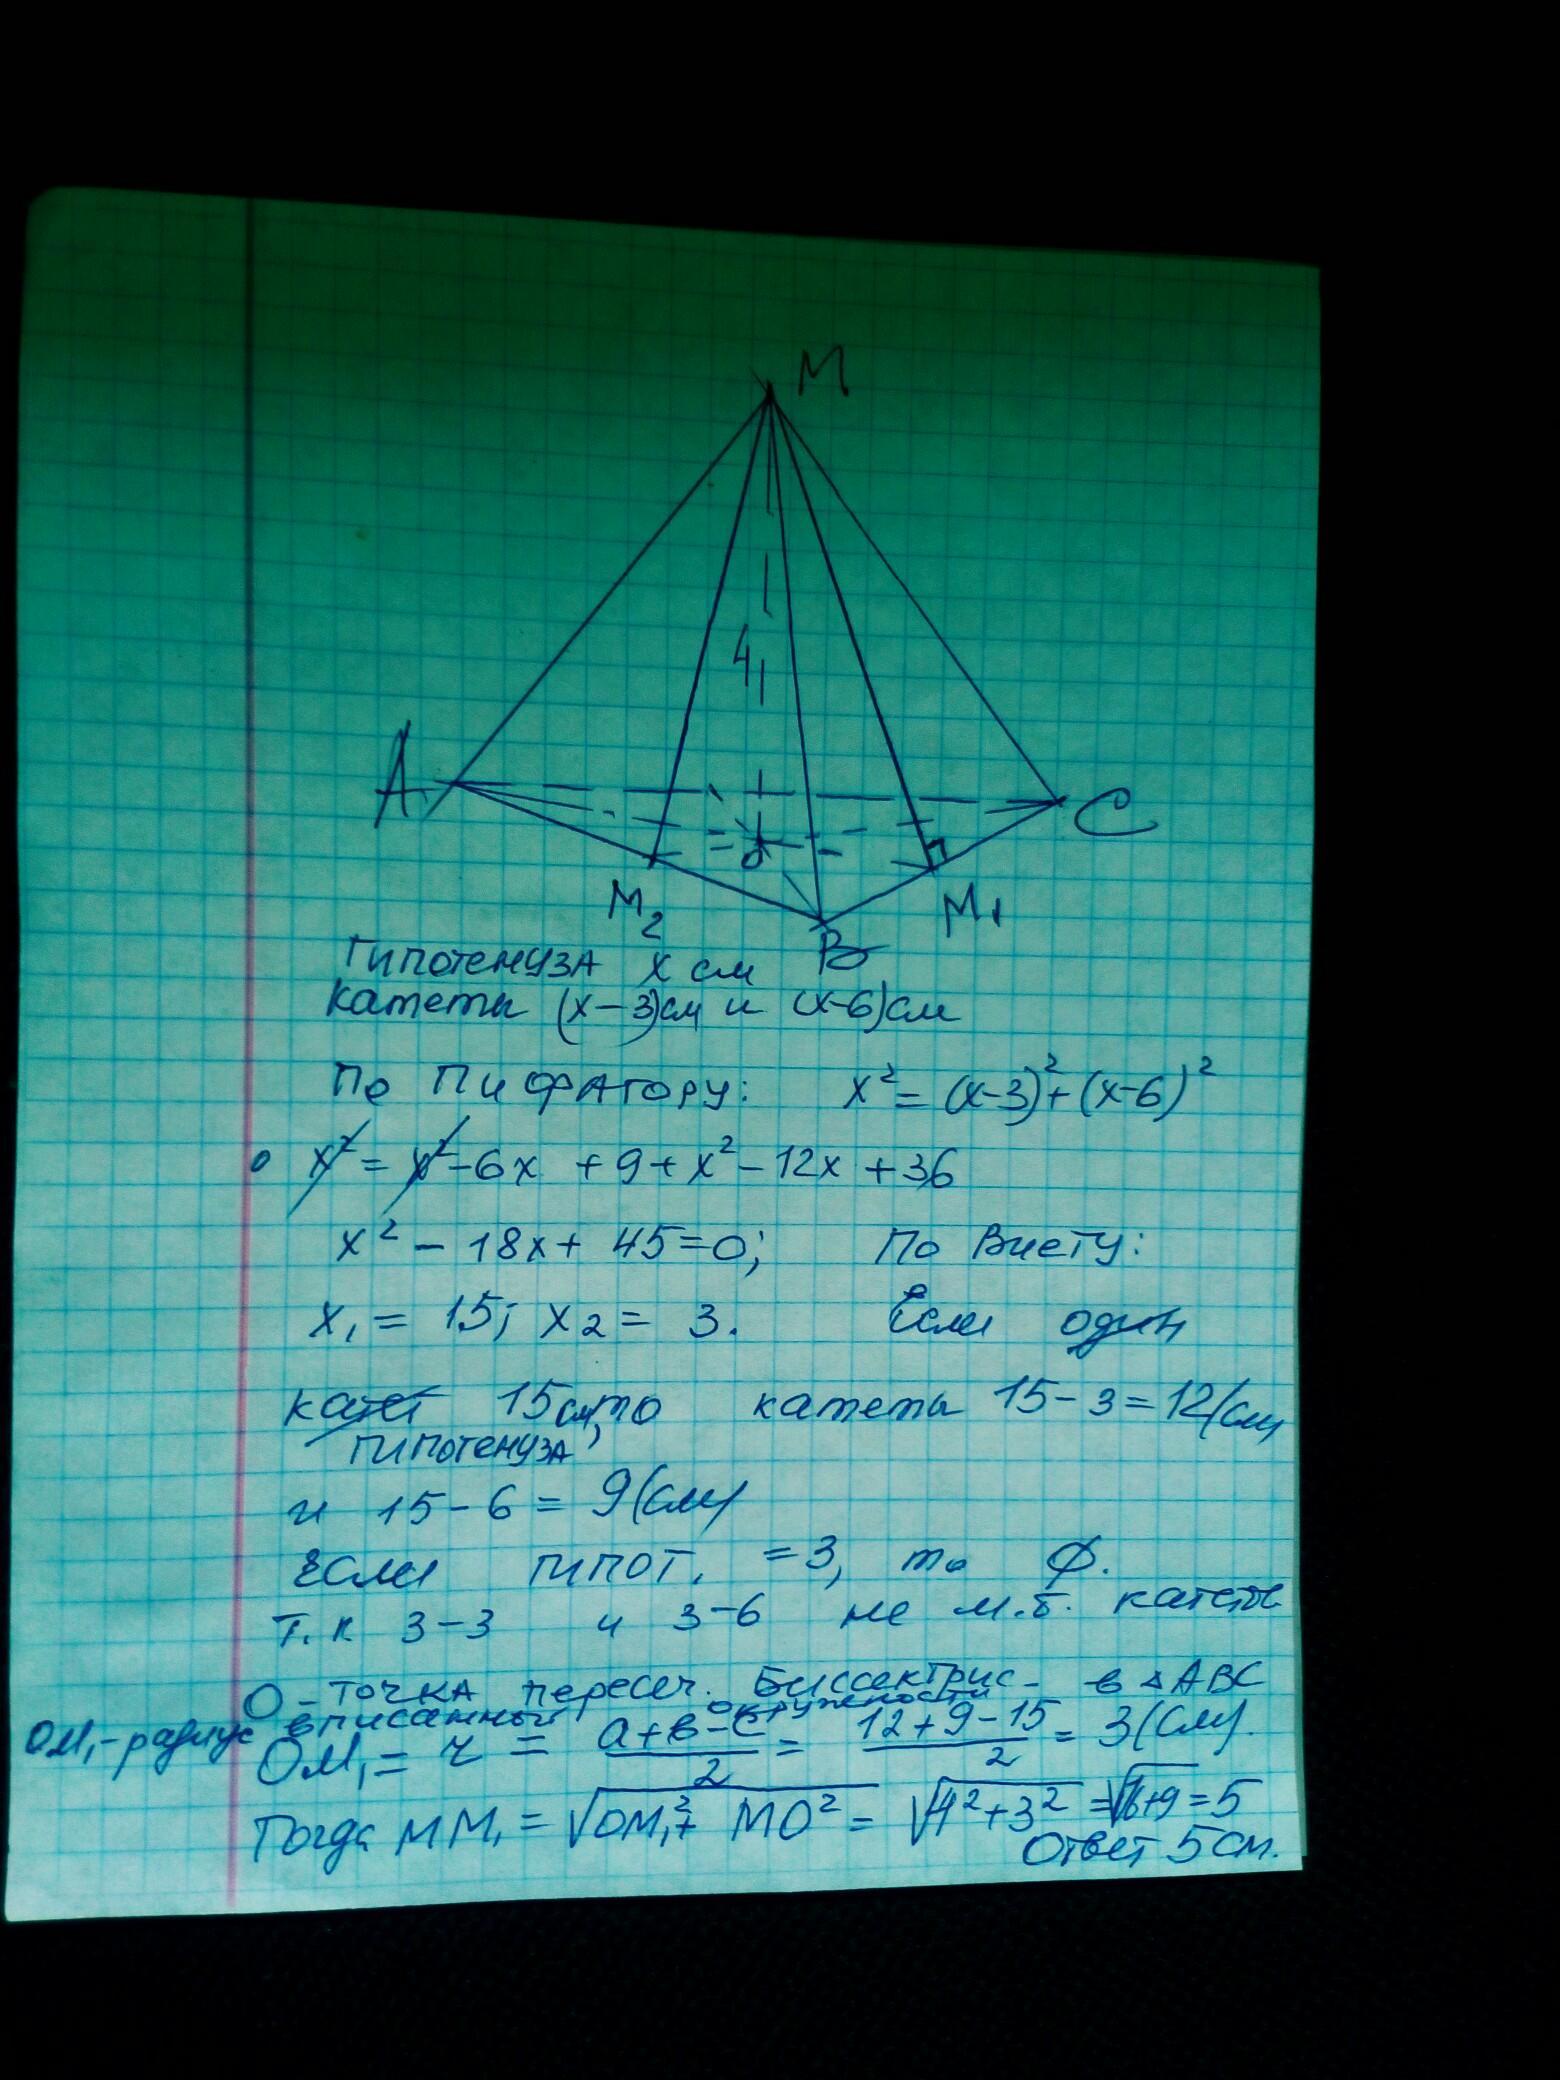 M
4
A
C
O
M₂
M₁
B
Гипотенуза x см
Катеты (x-3)см и (x-6)см
По Пифагору: x² = (x-3)² + (x-6)²
x² = x² - 6x + 9 + x² - 12x + 36
x² - 18x + 45 = 0; По Виету:
x₁ = 15; x₂ = 3. Если один
катет 15см, то катеты 15-3=12(см)
гипотенуза
и 15-6 = 9(см)
Если гипот. =3, то Ø.
т.к 3-3 и 3-6 не м.б. катеты
O - точка пересеч. Биссектрис в △ABC
OM₁ - радиус вписанной окружности
OM₁ = r = (a+b-c)/2 = (12+9-15)/2 = 3(см).
Тогда MM₁ = √(OM₁² + MO²) = √(4²+3²) = √(16+9) = 5
Ответ 5см.